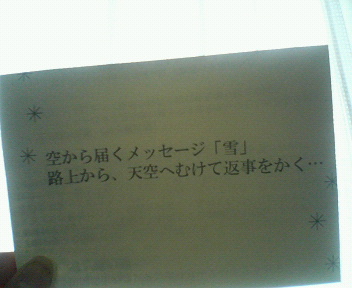 空から届くメッセージ「雪」
路上から、天空へむけて返事をかく…